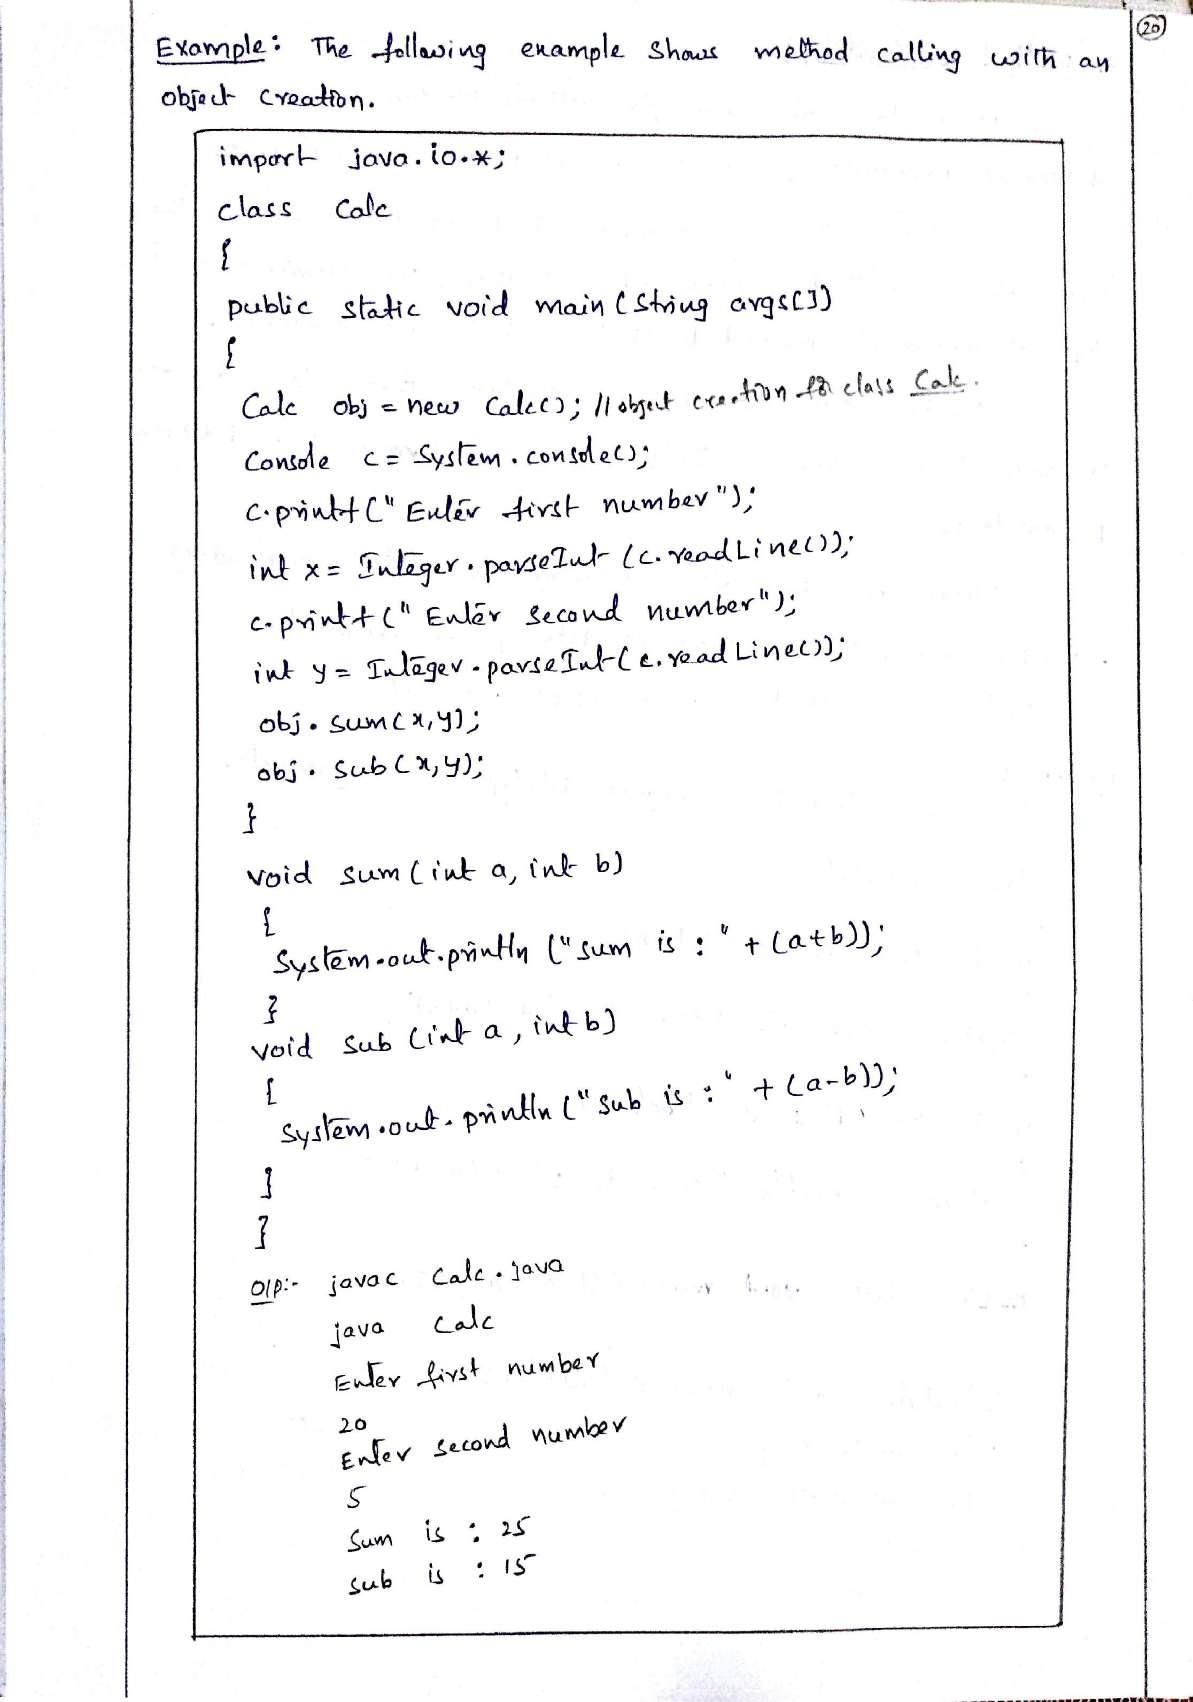 20
Example: The following example shows method calling with an
object creation.
import java.io.*;
class Calc
{
public static void main (String args[])
{
Calc obj = new Calc(); // object creation for class Calc.
Console c = System.console();
c.printf("Enter first number");
int x = Integer.parseInt (c.readLine());
c.printf("Enter second number");
int y = Integer.parseInt(c.readLine());
obj.sum(x,y);
obj.sub(x,y);
}
void sum (int a, int b)
{
System.out.println ("sum is : " + (a+b));
}
void sub (int a, int b)
{
System.out.println ("sub is : " + (a-b));
}
}
O/P:- javac Calc.java
java Calc
Enter first number
20
Enter second number
5
Sum is : 25
sub is : 15